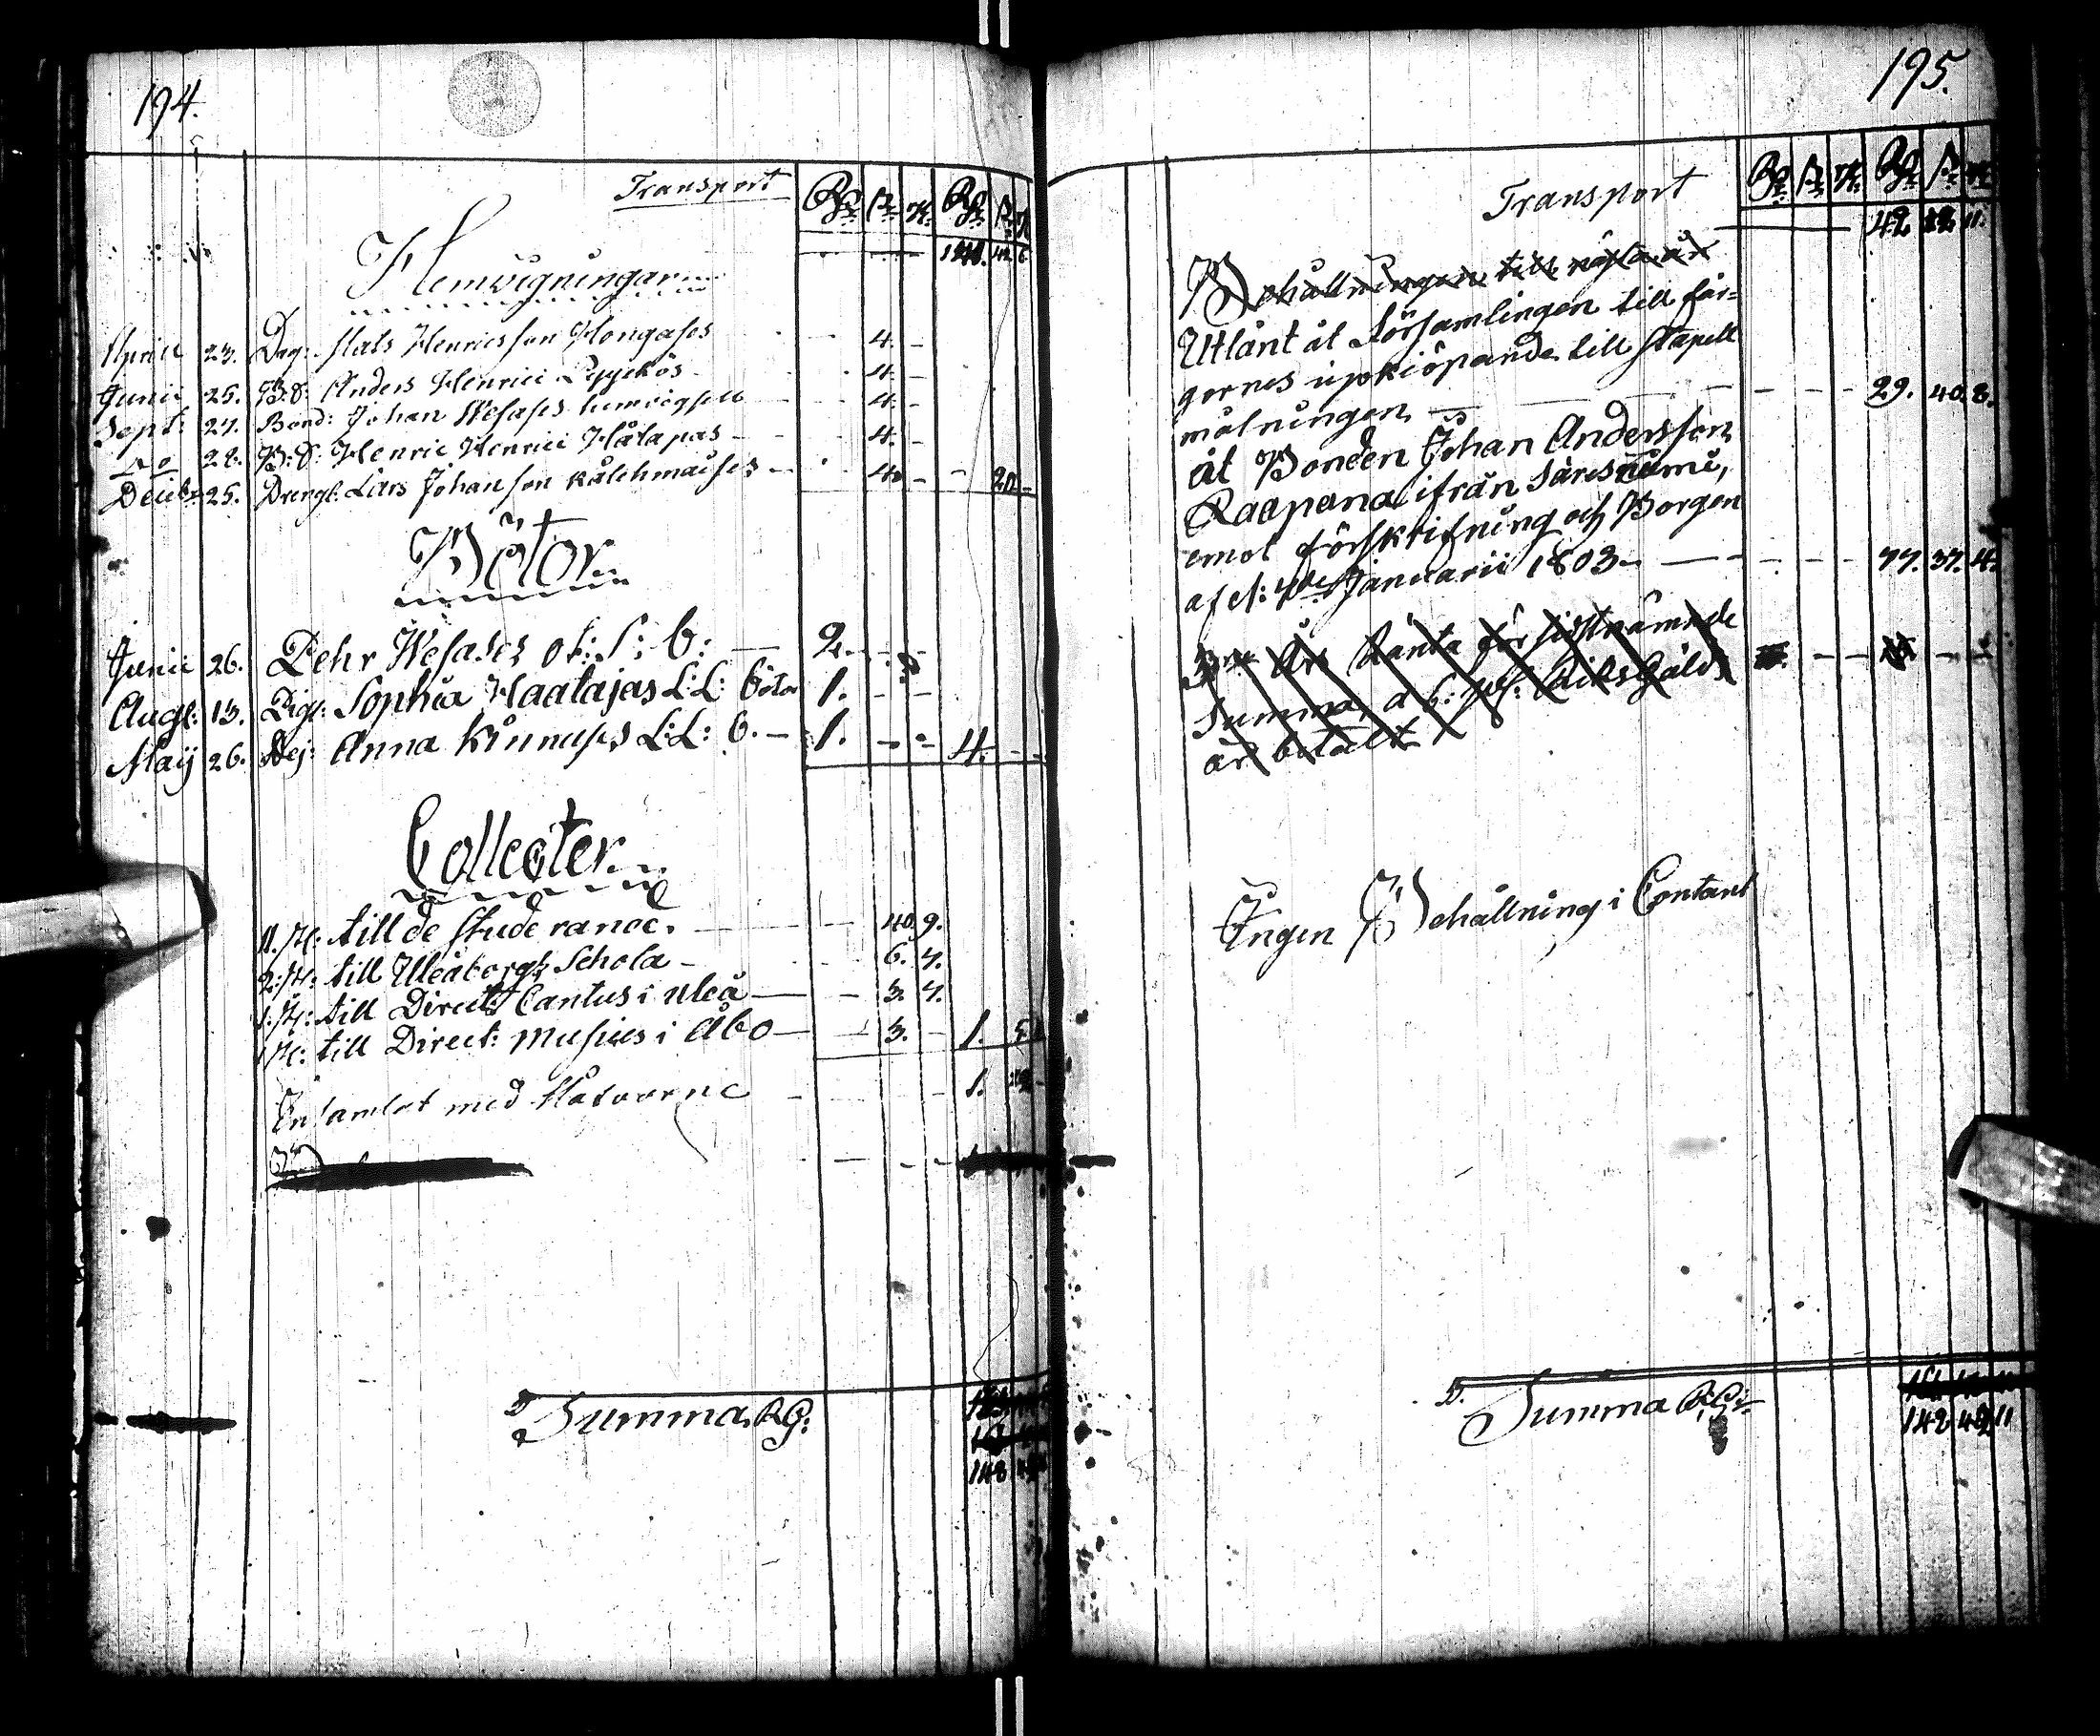 194.
Transport Rd. ß. rs. Rd. ß. rs.
Hemvigningar
Aprill 23. Drg: Mats Henricsson Hongases - 4. -
Junii 25. B:S: Anders Henrici Leppekös - 4. -
Sept: 27. Bond: Johan Wesases hemvigsell - 4. -
Do 28. B:S: Henric Henrici Hålapas - 4. -
Decebr 25. Drengl: Lars Johansson - 4. - - 20 -
Böter
Junii 26. Pehr Wesases of: S: b: 2. - -
Augl: 13. Pig: Sophia Haatajas L:L: böter 1. - -
Maij 26. Anna Kinnuses L:L: b. - 1. - - 4. - -
Collecter
11. rs: till de studerande. - 40. 9.
2: rs: till Uleåborgs Schola - 6. 7.
1: rs: till Direct: Cantus i Uleå - 3. 7.
rs: till Direct: Musices i Åbo - 3. - 1. 5
Insamlat med Håfvarne - - - 1.
Summa RG:
148
195.
Transport Rd. ß. rs. Rd. ß. rs.
42 11.
Behållningen till nästa år
Utlånt åt Församlingen till fär=
gornes upkiöpande till Stapell
målningen - - - 29. 40. 8.
åt Bonden Johan Andersson
Raapana ifrån Säresniemi,
emot förskrifning och Borgen
af d: 7de Januarii 1803 - - - 77. 37. 4.
Års Ränta för sidstnämnde
Summa, a 6: pC: Riksgälds
är betalt
Ingen Behållning i Contant
Summa RG:
11